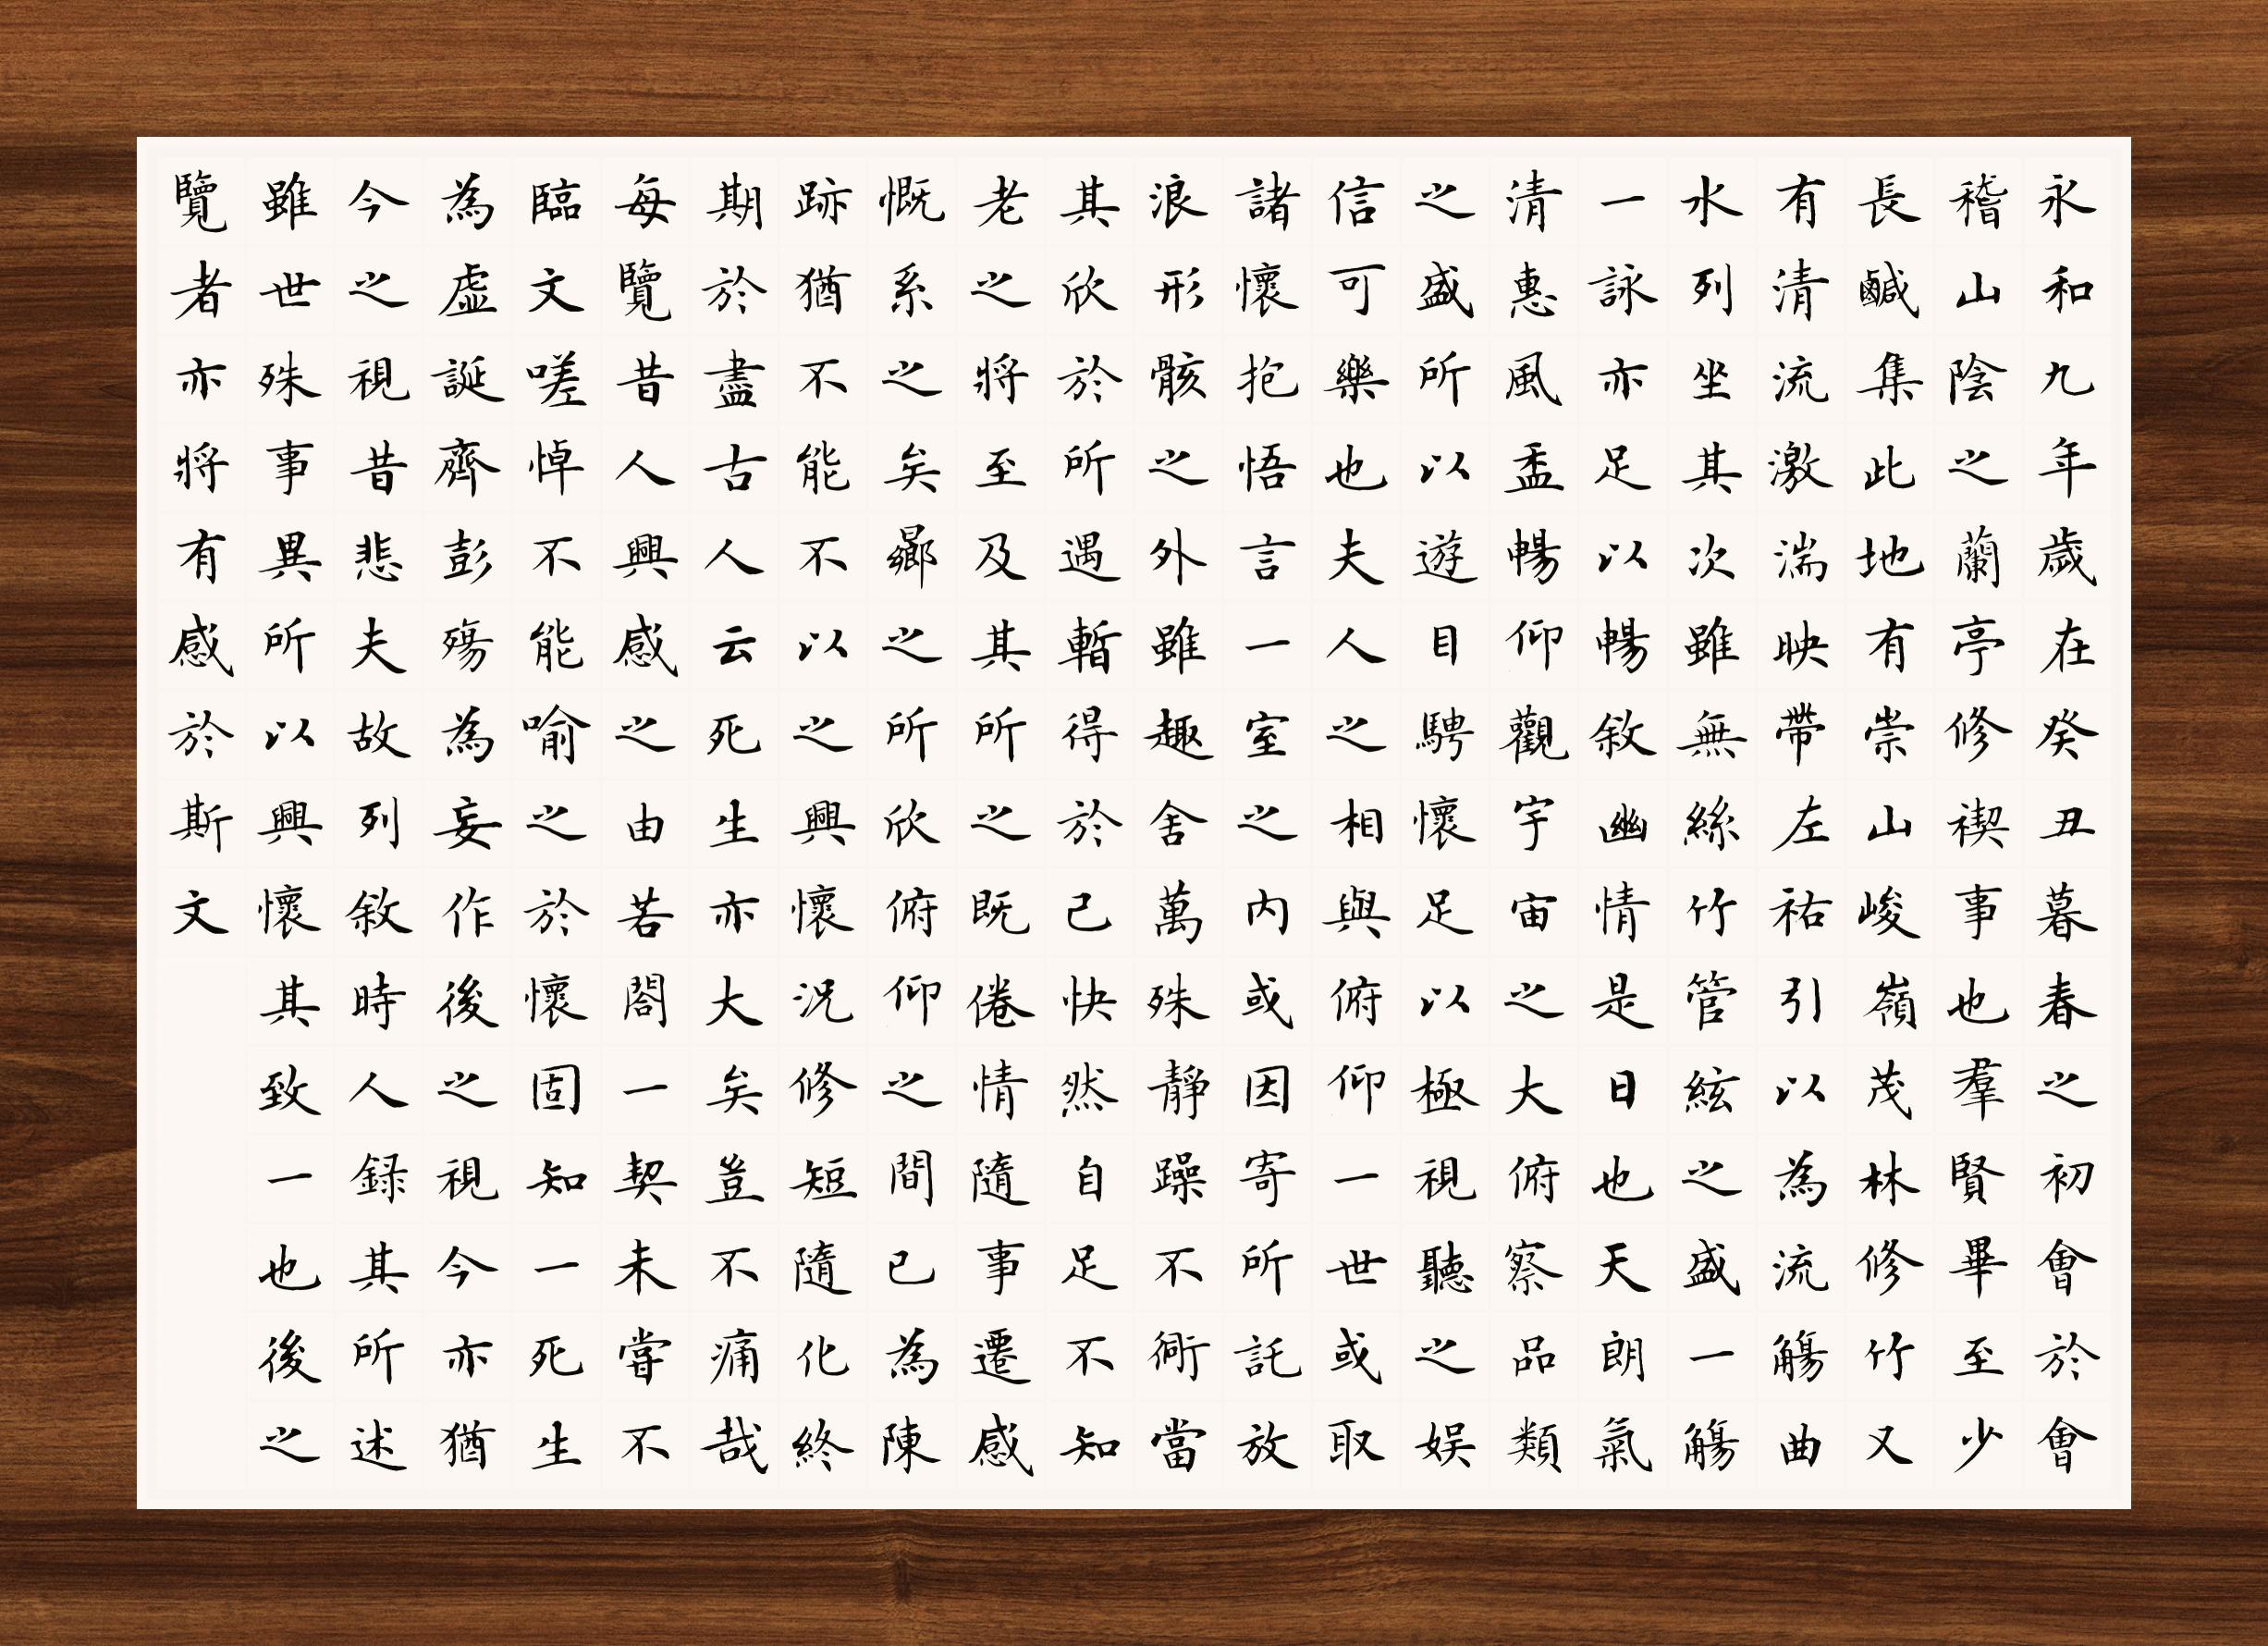 永和九年歲在癸丑暮春之初會於會
稽山陰之蘭亭修禊事也羣賢畢至少
長鹹集此地有崇山峻嶺茂林修竹又
有清流激湍映帶左祐引以為流觴曲
水列坐其次雖無絲竹管絃之盛一觴
一詠亦足以暢敘幽情是日也天朗氣
清惠風盉暢仰觀宇宙之大俯察品類
之盛所以遊目騁懷足以極視聽之娛
信可樂也夫人之相與俯仰一世或取
諸懷抱悟言一室之內或因寄所託放
浪形骸之外雖趣舍萬殊靜躁不衕當
其欣於所遇暫得於己快然自足不知
老之將至及其所之既倦情隨事遷感
慨系之矣曏之所欣俯仰之間已為陳
跡猶不能不以之興懷況修短隨化終
期於盡古人云死生亦大矣豈不痛哉
每覽昔人興感之由若閤一契未嘗不
臨文嗟悼不能喻之於懷固知一死生
為虛誕齊彭殤為妄作後之視今亦猶
今之視昔悲夫故列敘時人錄其所述
雖世殊事異所以興懷其致一也後之
覽者亦將有感於斯文